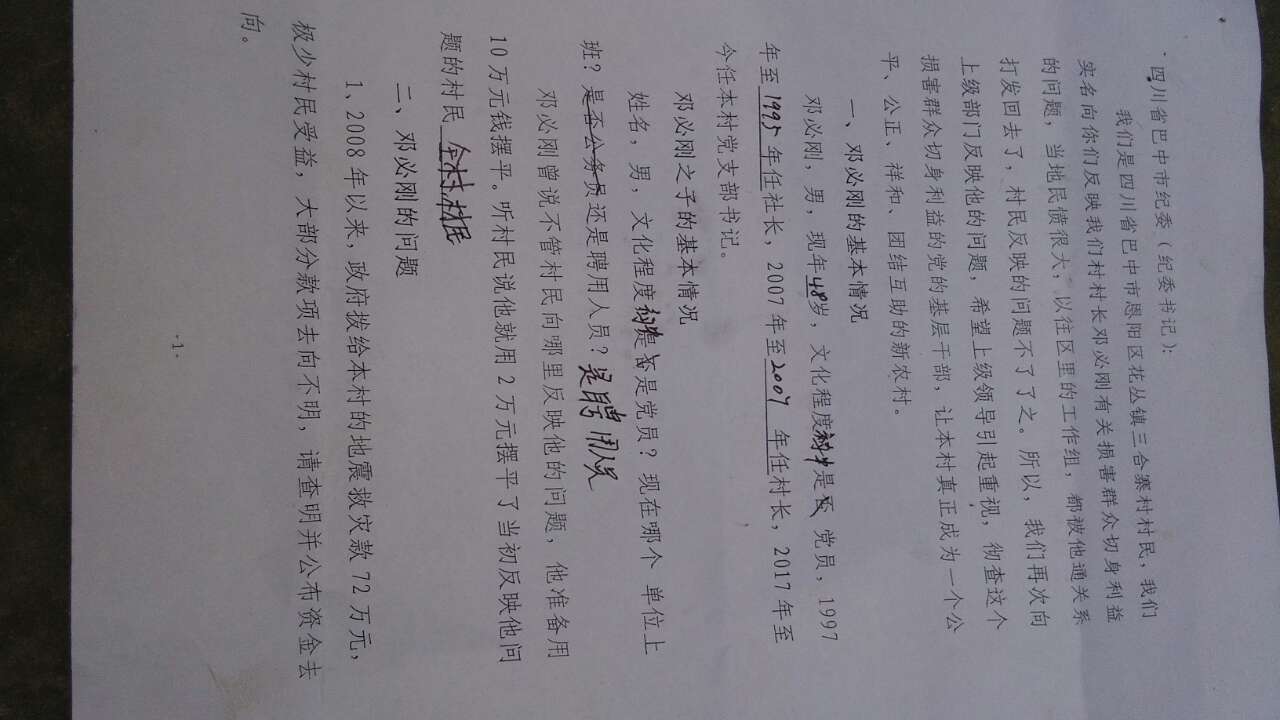 四川省巴中市纪委（纪委书记）：
我们是四川省巴中市恩阳区花丛镇三合寨村村民，我们
实名向你们反映我们村村长邓必刚有关损害群众切身利益
的问题，当地民愤很大，以往区里的工作组，都被他通关系
打发回去了，村民反映的问题不了了之。所以，我们再次向
上级部门反映他的问题，希望上级领导引起重视，彻查这个
损害群众切身利益的党的基层干部，让本村真正成为一个公
平、公正、祥和、团结互助的新农村。
一、邓必刚的基本情况
邓必刚，男，现年48岁，文化程度初中是 党员，1997
年至1995年任社长，2007年至2007年任村长，2017年至
今任本村党支部书记。
邓必刚之子的基本情况
姓名，男，文化程度 是否是党员？现在哪个 单位上
班？是否公务员还是聘用人员？是聘用人员
邓必刚曾说不管村民向哪里反映他的问题，他准备用
10万元钱摆平。听村民说他就用2万元摆平了当初反映他问
题的村民 全村村民
二、邓必刚的问题
1、2008年以来，政府拨给本村的地震救灾款72万元，
极少村民受益，大部分款项去向不明，请查明并公布资金去
向。
·1·